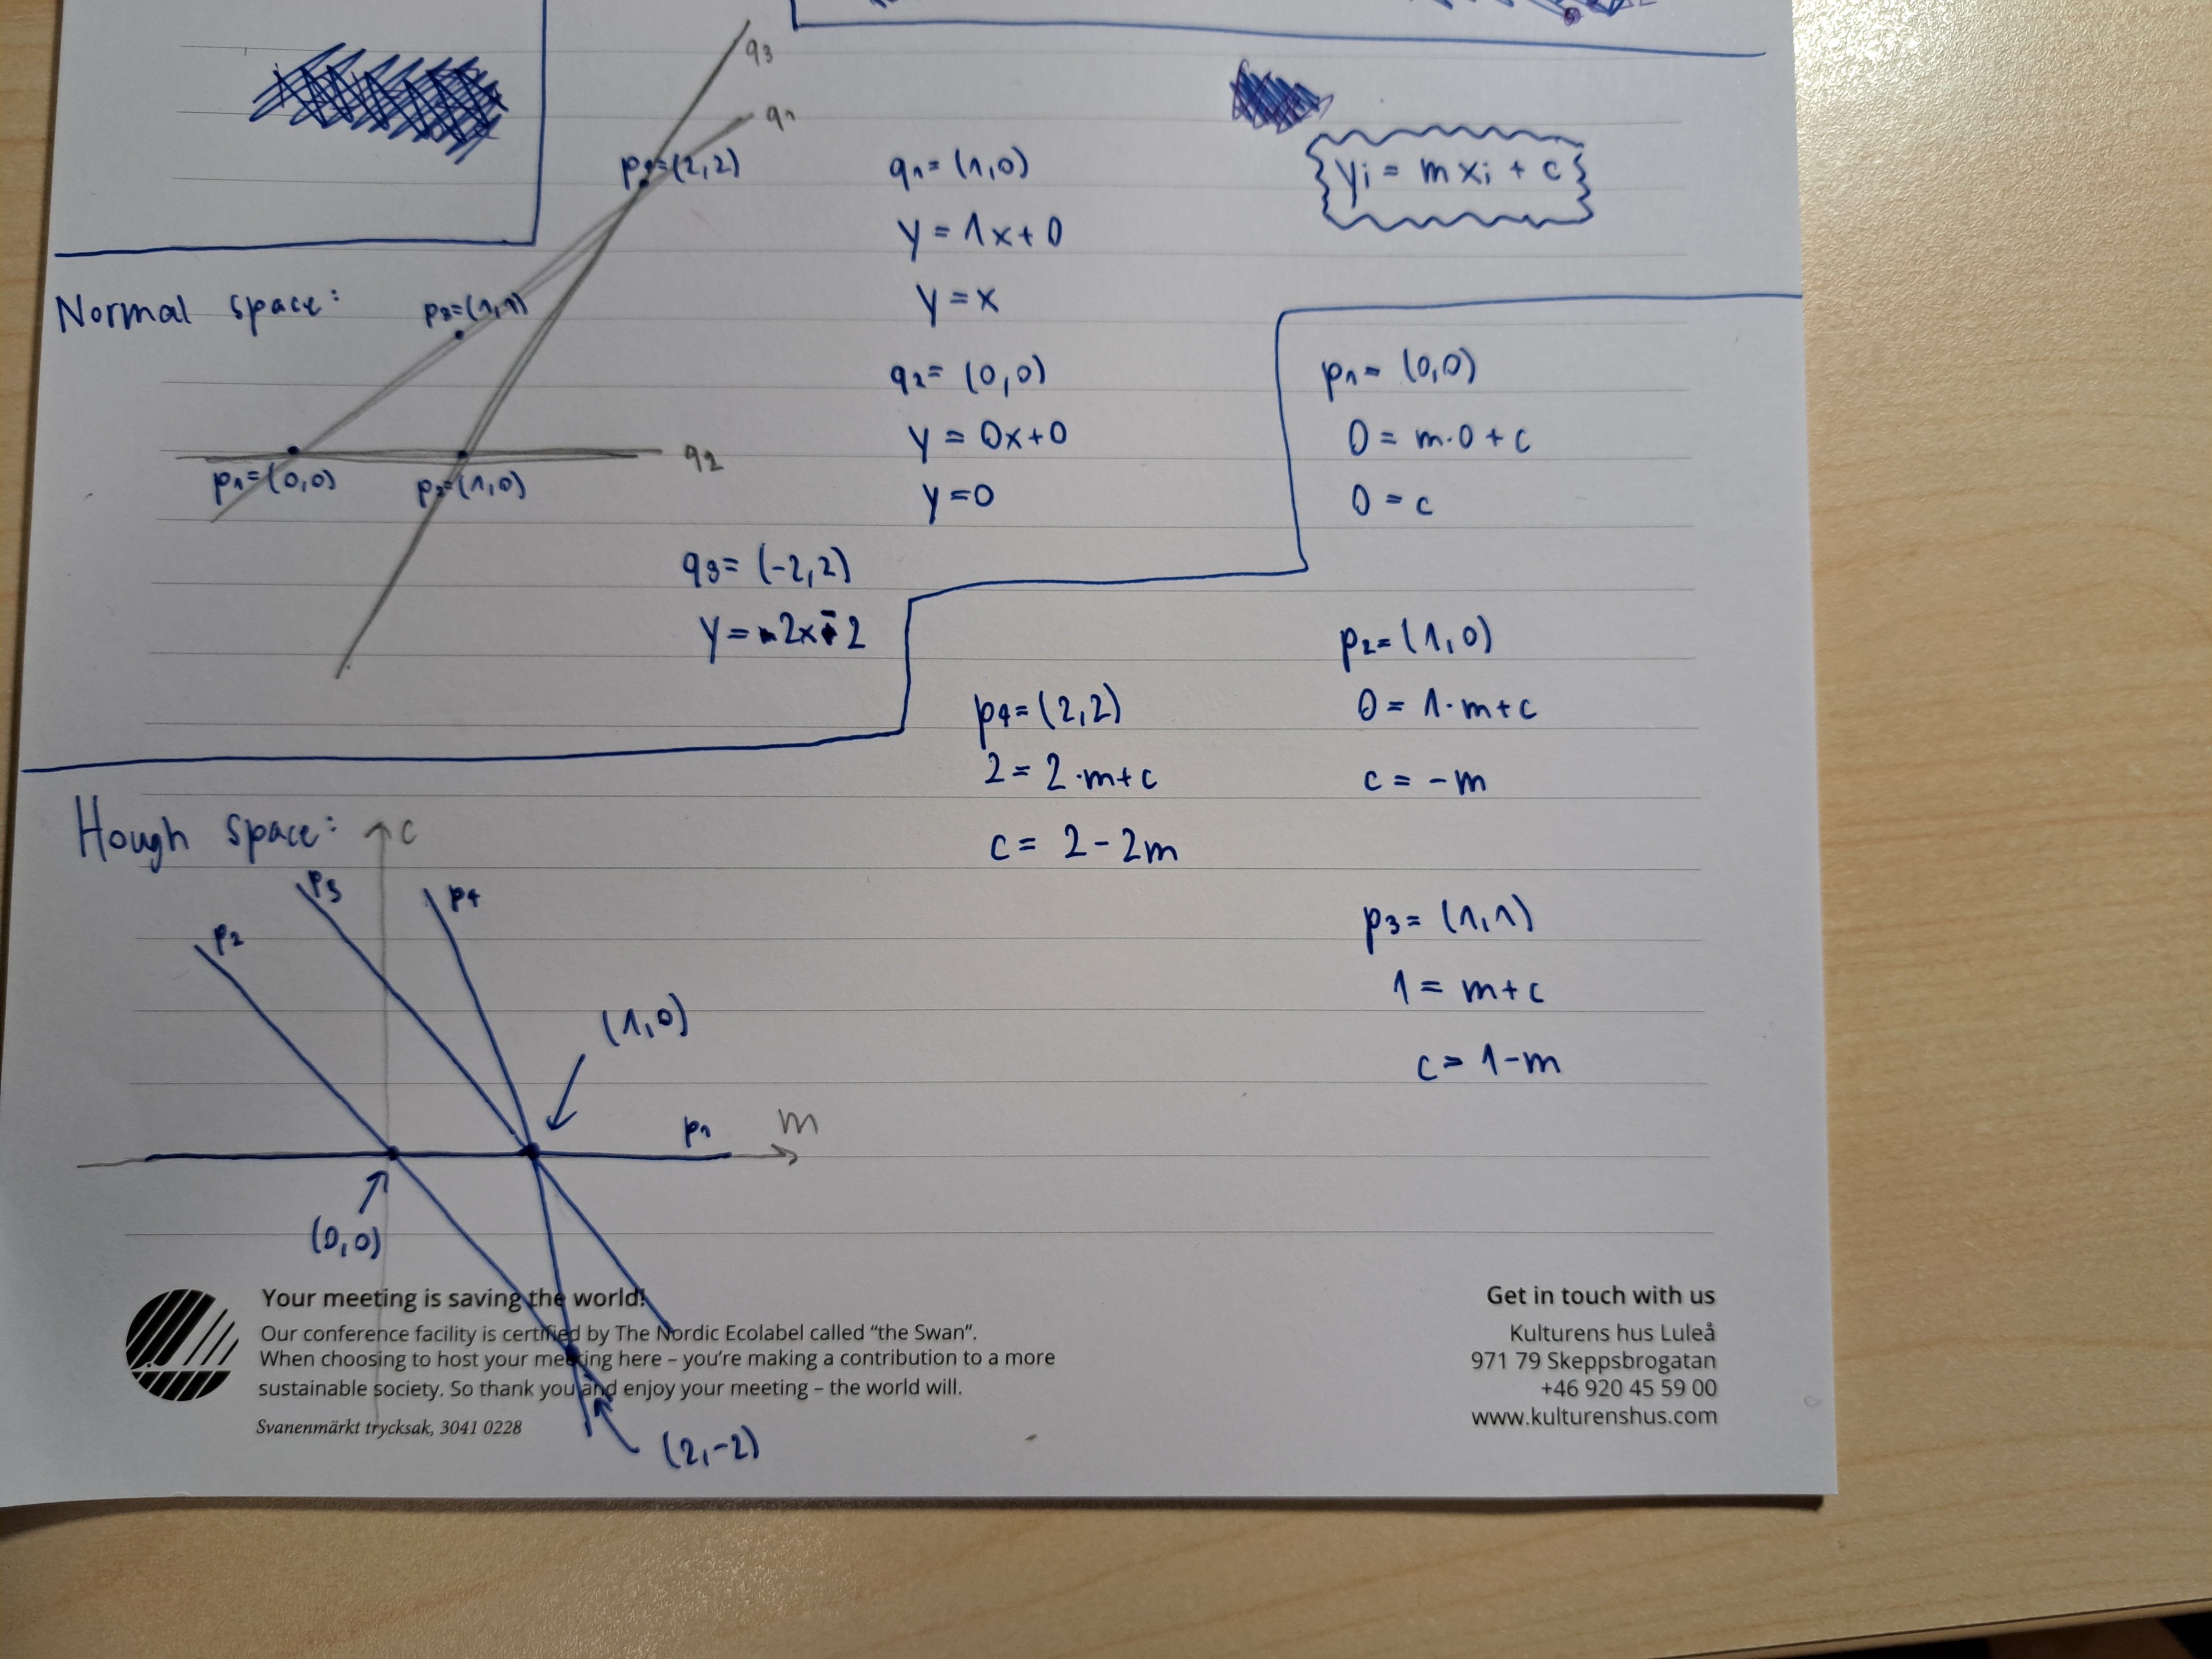 q3
q1
p4=(2,2)
q1= (1,0)
yi = mxi + c
y = 1x+0
y = x
Normal space:
p3=(1,1)
q2= (0,0)
y = 0x+0
y=0
q2
p1=(0,0)
p2=(1,0)
q3= (-2,2)
y = 2x-2
p1= (0,0)
0 = m·0 + c
0 = c
p2=(1,0)
0 = 1·m+c
c = -m
p4=(2,2)
2= 2·m+c
c = 2-2m
p3= (1,1)
1 = m+c
c = 1-m
Hough space:
c
p3
p4
p2
(1,0)
p1
m
(0,0)
(2,-2)
Your meeting is saving the world!
Our conference facility is certified by The Nordic Ecolabel called “the Swan”.
When choosing to host your meeting here – you’re making a contribution to a more
sustainable society. So thank you and enjoy your meeting – the world will.
Svanenmärkt trycksak, 3041 0228
Get in touch with us
Kulturens hus Luleå
971 79 Skeppsbrogatan
+46 920 45 59 00
www.kulturenshus.com